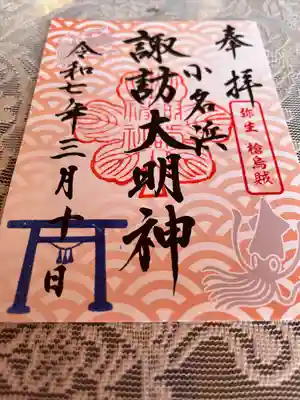 奉拝
弥生 槍烏賊
小名浜
諏訪大明神
令和七年三月十日